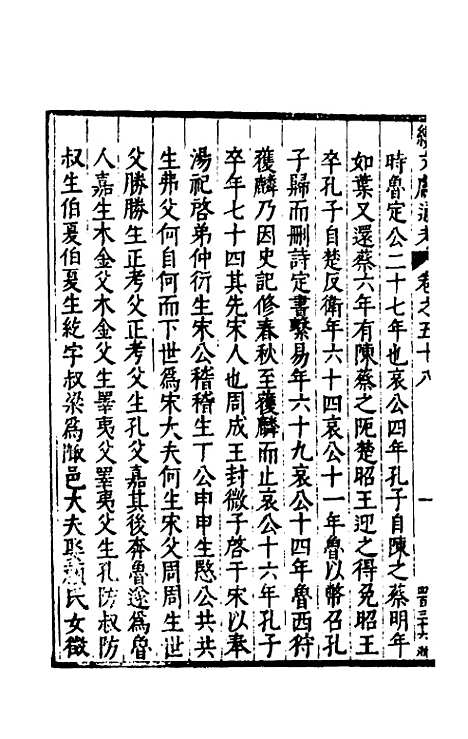 續文獻通考 卷之五十八 一
時魯定公二十七年也哀公四年孔子自陳之蔡明年
如葉又還蔡六年有陳蔡之阨楚昭王迎之得免昭王
卒孔子自楚反衛年六十四哀公十一年魯以幣召孔
子歸而刪詩定書繫易年六十九哀公十四年魯西狩
獲麟乃因史記修春秋至獲麟而止哀公十六年孔子
卒年七十四其先宋人也周成王封微子啓于宋以奉
湯祀啓弟仲衍生宋公稽稽生丁公申申生愍公共共
生弗父何自何而下世爲宋大夫何生宋父周周生世
父勝勝生正考父正考父生孔父嘉其後奔魯遂爲魯
人嘉生木金父木金父生睪夷父睪夷父生孔防叔防
叔生伯夏伯夏生紇字叔梁爲陬邑大夫娶顏氏女徵